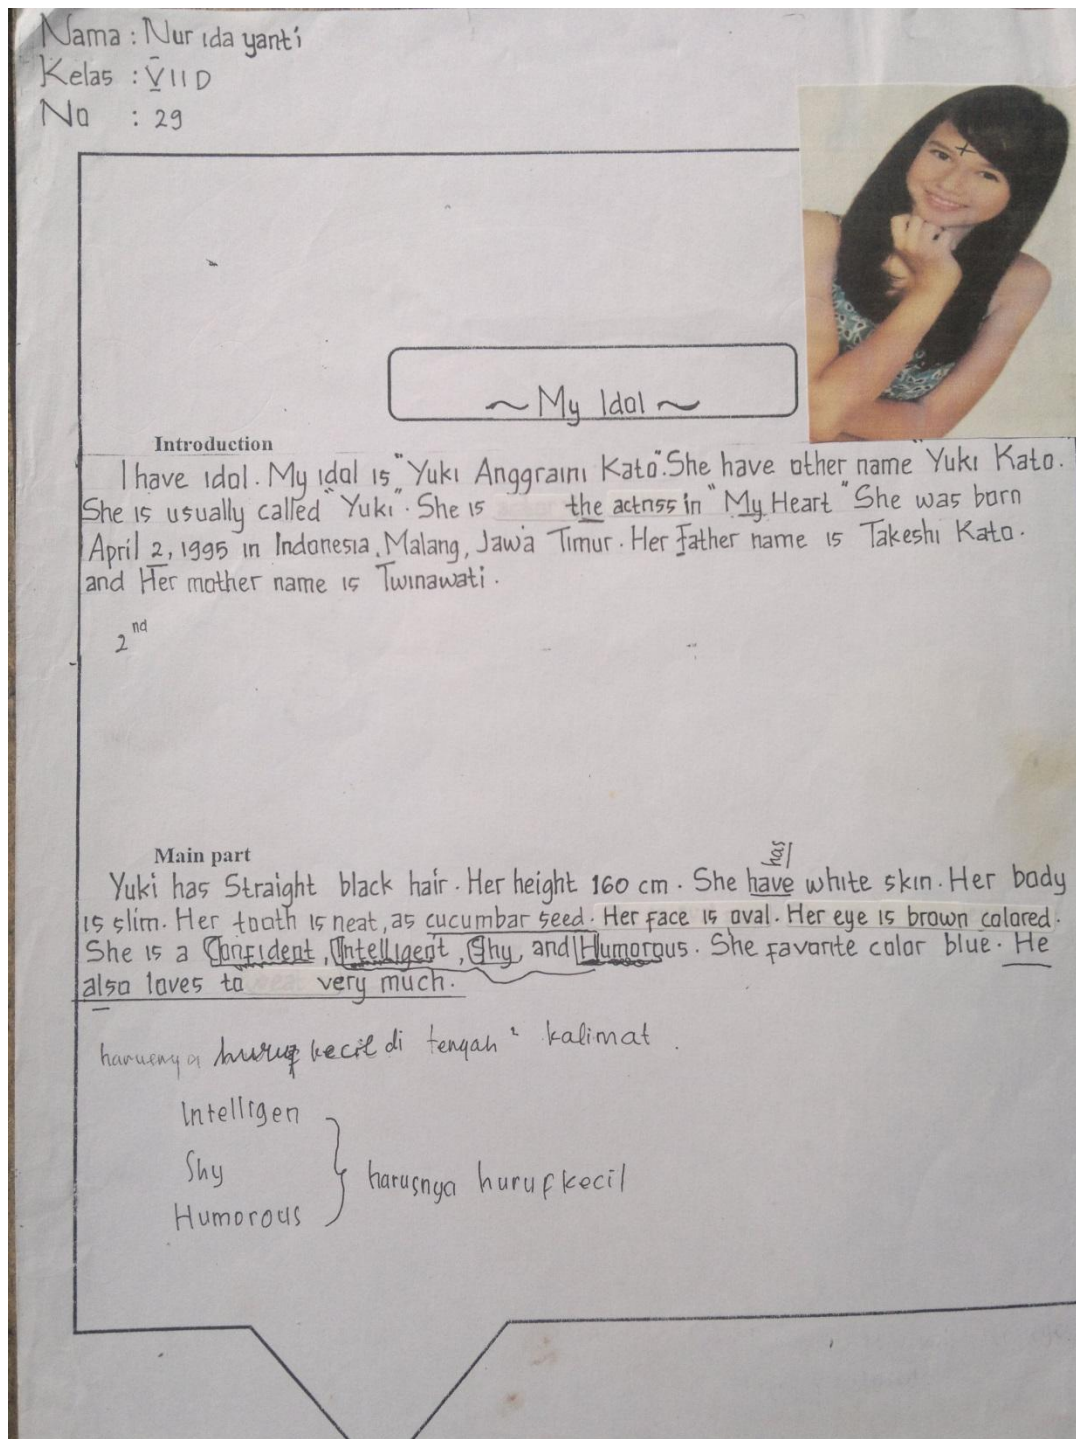 Nama : Nur ida yanti
Kelas : VII D
No : 29
~ My Idol ~
Introduction
I have idol. My idol is "Yuki Anggraini Kato". She have other name "Yuki Kato.
She is usually called "Yuki". She is the actrss in "My Heart" She was born
April 2, 1995 in Indonesia, Malang, Jawa Timur. Her Father name is Takeshi Kato.
and Her mother name is Twinawati.
2nd
Main part
has
Yuki has Straight black hair. Her height 160 cm. She have white skin. Her body
is slim. Her tooth is neat, as cucumbar seed. Her face is oval. Her eye is brown colored.
She is a Confident, Intelligent, Shy, and Humorous. She favorite color blue. He
also loves to very much.
harusnya huruf kecil di tengah² kalimat.
Intelligen
Shy
Humorous
harusnya huruf kecil